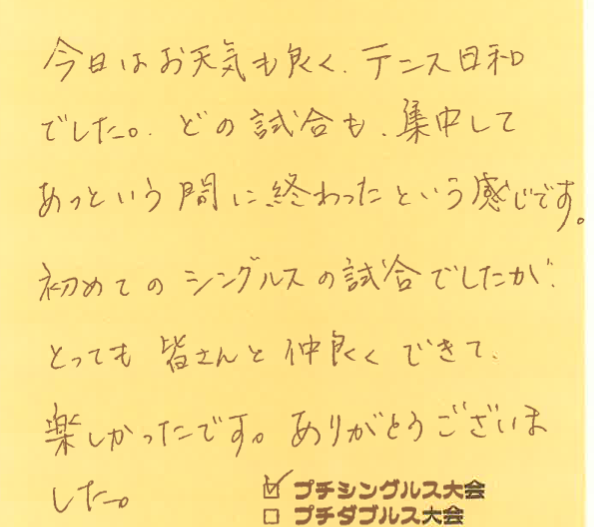 今日はお天気も良く、テニス日和
でした。どの試合も、集中して
あっという間に終わったという感じです。
初めてのシングルスの試合でしたが、
とっても皆さんと仲良くできて、
楽しかったです。ありがとうございま
した。
☑ プチシングルス大会
□ プチダブルス大会